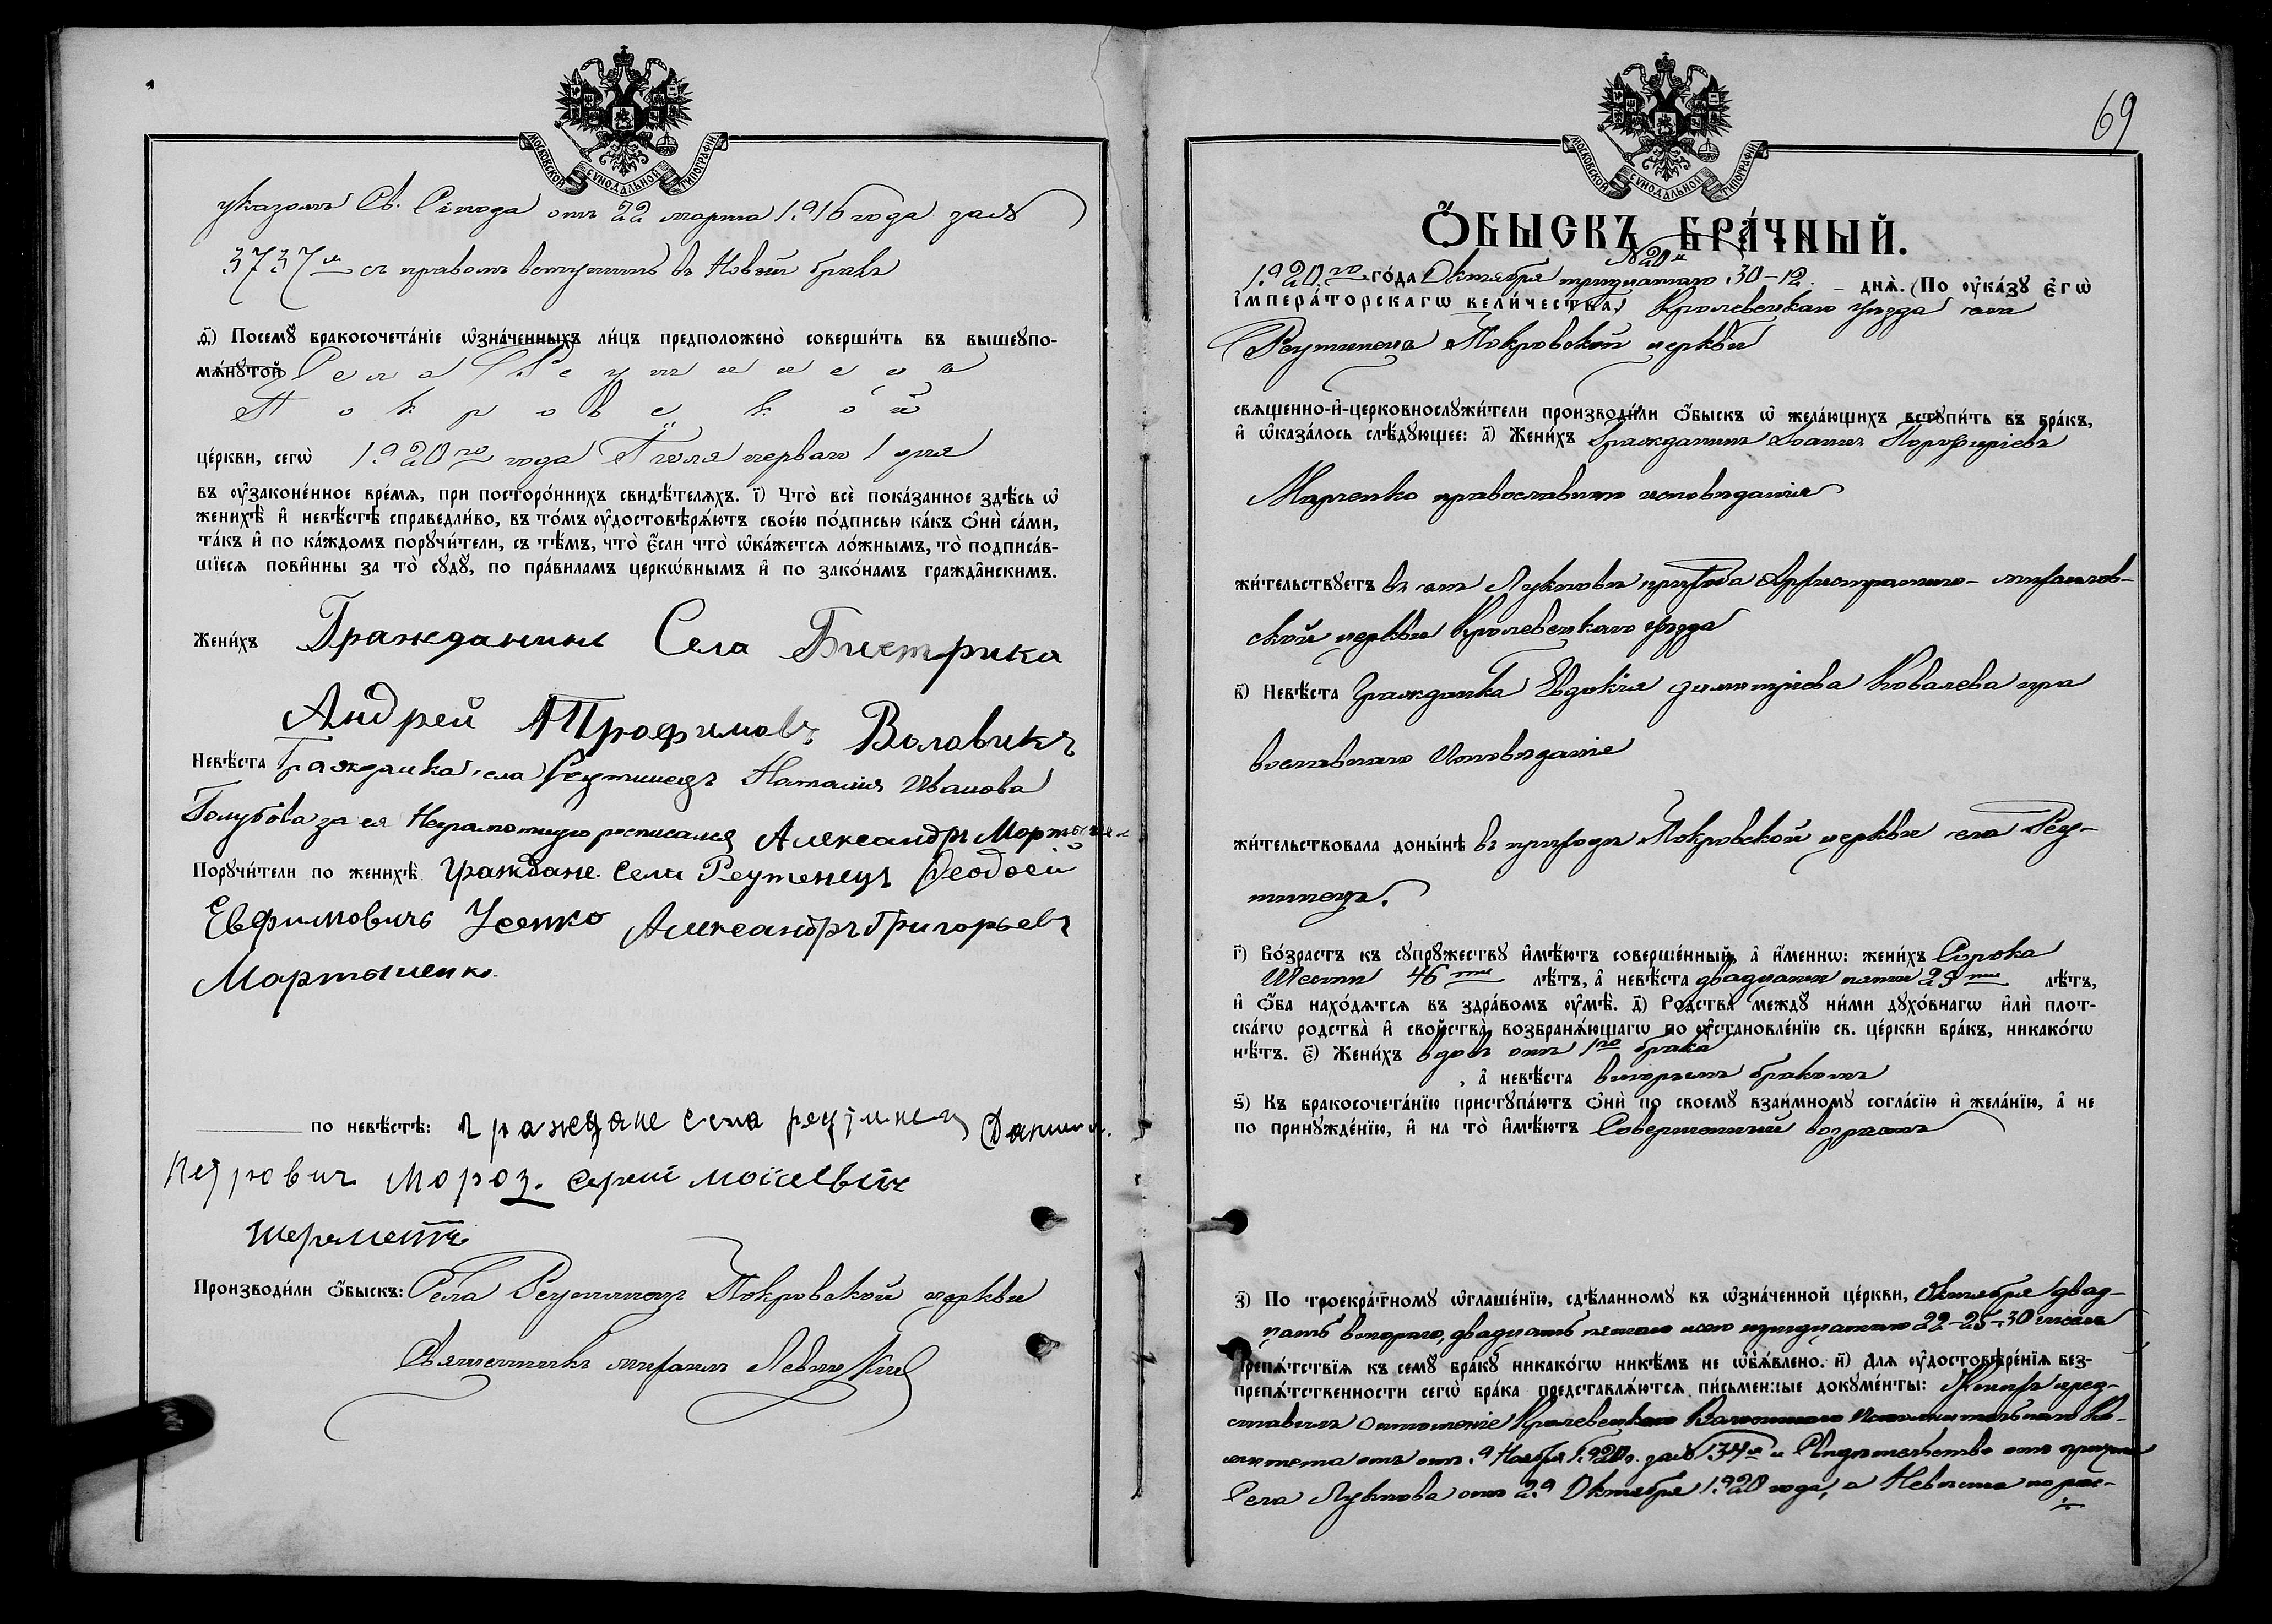 МОСКОВСКОЙ СѴНОДАЛЬНОЙ ТИПОГРАФІИ
указомъ Св. Синода отъ 22 марта 1916 года за №
3737 съ правомъ вступить въ Новый бракъ
ѳ҃) Посемꙋ бракосочета́нїе ѡ҆зна́ченныхъ ли́цъ предположено̀ соверши́ть въ вышеꙋпо-
мѧ́нꙋтой Села Реутинецъ
Покровской
це́ркви, сегѡ̀ 1920го года Іюля перваго 1 дня
въ ᲂу҆законе́нное вре́мѧ, при посторо́ннихъ свидѣ́телѧхъ. і҃) Что̀ всѐ пока́занное здѣ́сь ѡ҆
женихѣ̀ и҆ невѣ́стѣ справедли́во, въ то́мъ ᲂу҆достовѣрѧ́ютъ свое́ю по́дписью ка́къ ѻ҆нѝ са́ми,
та́къ и҆ по ка́ждомъ порꙋчи́тели, съ тѣ́мъ, что̀ є҆́сли что̀ ѡ҆ка́жетсѧ ло́жнымъ, то̀ подписа́в-
шїесѧ пови́нны за то̀ сꙋдꙋ̀, по пра́виламъ церкѡ́внымъ и҆ по зако́намъ гражда́нскимъ.
Жени́хъ Гражданинъ Села Бистрика
Андрей Трофимовъ Воловикъ
Невѣ́ста Гражданка села Реутинецъ Наталия Иванова
Голубова за ея Неграмотную росписался Александръ Мартыше
Порꙋчи́тели по женихѣ̀ граждане села Реутенецъ Феодосій
Евфимовичъ Усенко Александръ Григорьевъ
Мартышенко.
по невѣ́стѣ: граждане села реутинец Данило
Петрович Мороз. Сергій Моісеевичъ
шереметъ
Производи́ли ѻ҆́быскъ: Села Реутинецъ Покровской церкви
Священникъ Михаилъ Левицкій
69
МОСКОВСКОЙ СѴНОДАЛЬНОЙ ТИПОГРАФІИ
Ѻ҆́БЫСКЪ БРА́ЧНЫЙ.
№ 20й
1920го го́да Октября тридцатаго 30–12 днѧ̀. (По ᲂу҆ка́зꙋ Є҆гѡ̀
І҆мпера́торскагѡ вели́чества,) Кролевецкаго уѣзда села
Реутинецъ Покровской церкви
свѧще́нно-и҆-церковнослꙋжи́тели производи́ли ѻ҆́быскъ ѡ҆ жела́ющихъ встꙋпи́ть въ бра́къ,
и҆ ѡ҆каза́лось слѣ́дꙋющее: а҃) Жени́хъ Гражданинъ Іоаннъ Порфиріевъ
Марченко православнаго исповѣданія
жи́тельствꙋетъ въ селѣ Лукновѣ прихода Архистратиго-михаилов-
ской церкви Кролевецкаго уѣзда
в҃) Невѣ́ста Гражданка Евдокія Димитріева Ковалева пра
вославнаго Исповѣданія
жи́тельствовала доны́нѣ въ приходѣ Покровской церкви села Реу-
тинецъ.
г҃) Во́зрастъ къ сꙋпрꙋ́жествꙋ и҆мѣ́ютъ соверше́нный, а҆ и҆́меннѡ: жени́хъ Сорока
Шести 46ти лѣ́тъ, а҆ невѣ́ста двадцати пяти 25ти лѣ́тъ,
и҆ ѻ҆́ба нахо́дѧтсѧ въ здра́вомъ ᲂу҆мѣ̀. д҃) Родства̀ междꙋ̀ ни́ми дꙋхо́внагѡ и҆лѝ плот-
ска́гѡ родства̀ и҆ сво́йства̀ возбранѧ́ющагѡ по ᲂу҆становле́нїю св. це́ркви бра́къ, никако́гѡ
нѣ́тъ. є҃) Жени́хъ вдовъ отъ 1го брака
, а҆ невѣ́ста вторымъ бракомъ
ѕ҃) Къ бракосочета́нїю пристꙋпа́ютъ ѻ҆нѝ по своемꙋ̀ взаи́мномꙋ согла́сїю и҆ жела́нїю, а҆ не
по принꙋжде́нїю, и҆ на то̀ и҆мѣ́ютъ Совершенный возрастъ
з҃) По троекра́тномꙋ ѡ҆глаше́нїю, сдѣ́ланномꙋ въ ѡ҆зна́ченной це́ркви, Октября двад-
цать втораго, двадцать пятаго и тридцатаго 22–25–30 числа
препѧ́тствїѧ къ семꙋ̀ бра́кꙋ никако́гѡ никѣ́мъ не ѡ҆бъѧ́влено. и҃) Длѧ ᲂу҆достовѣре́нїѧ без-
препѧ́тственности сегѡ̀ бра́ка представлѧ́ютсѧ пи́сьменные докꙋме́нты: Женихъ пред-
ставилъ отношеніе Кролевецкаго Волостнаго Исполнительнаго Ко-
митета отъ 9 Ноября 1920 г. за № 134 и Свидетельство отъ причта
Села Лукнова отъ 29 Октября 1920 года, а Невеста по рас-